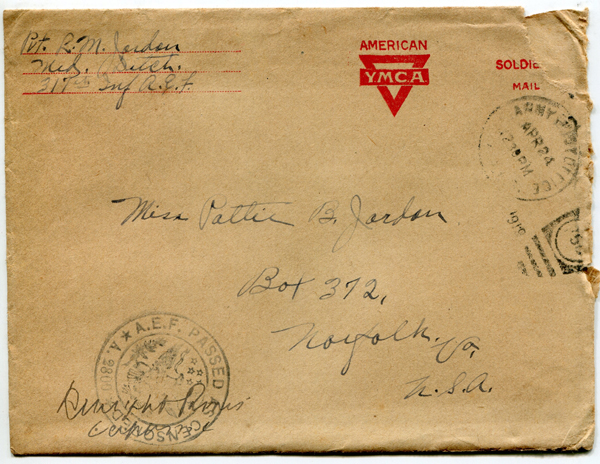 Pvt. R. M. Jordan
Med. Detch.
319th Inf A.E.F.
AMERICAN
Y.M.C.A
SOLDIE
MAIL
ARMY POST OFFICE
APR 24
PM
1919
Miss Pattie B. Jordan
Box 372,
Norfolk, Va,
U.S.A.
A.E.F. PASSED
CENSOR
Dwight
Capt